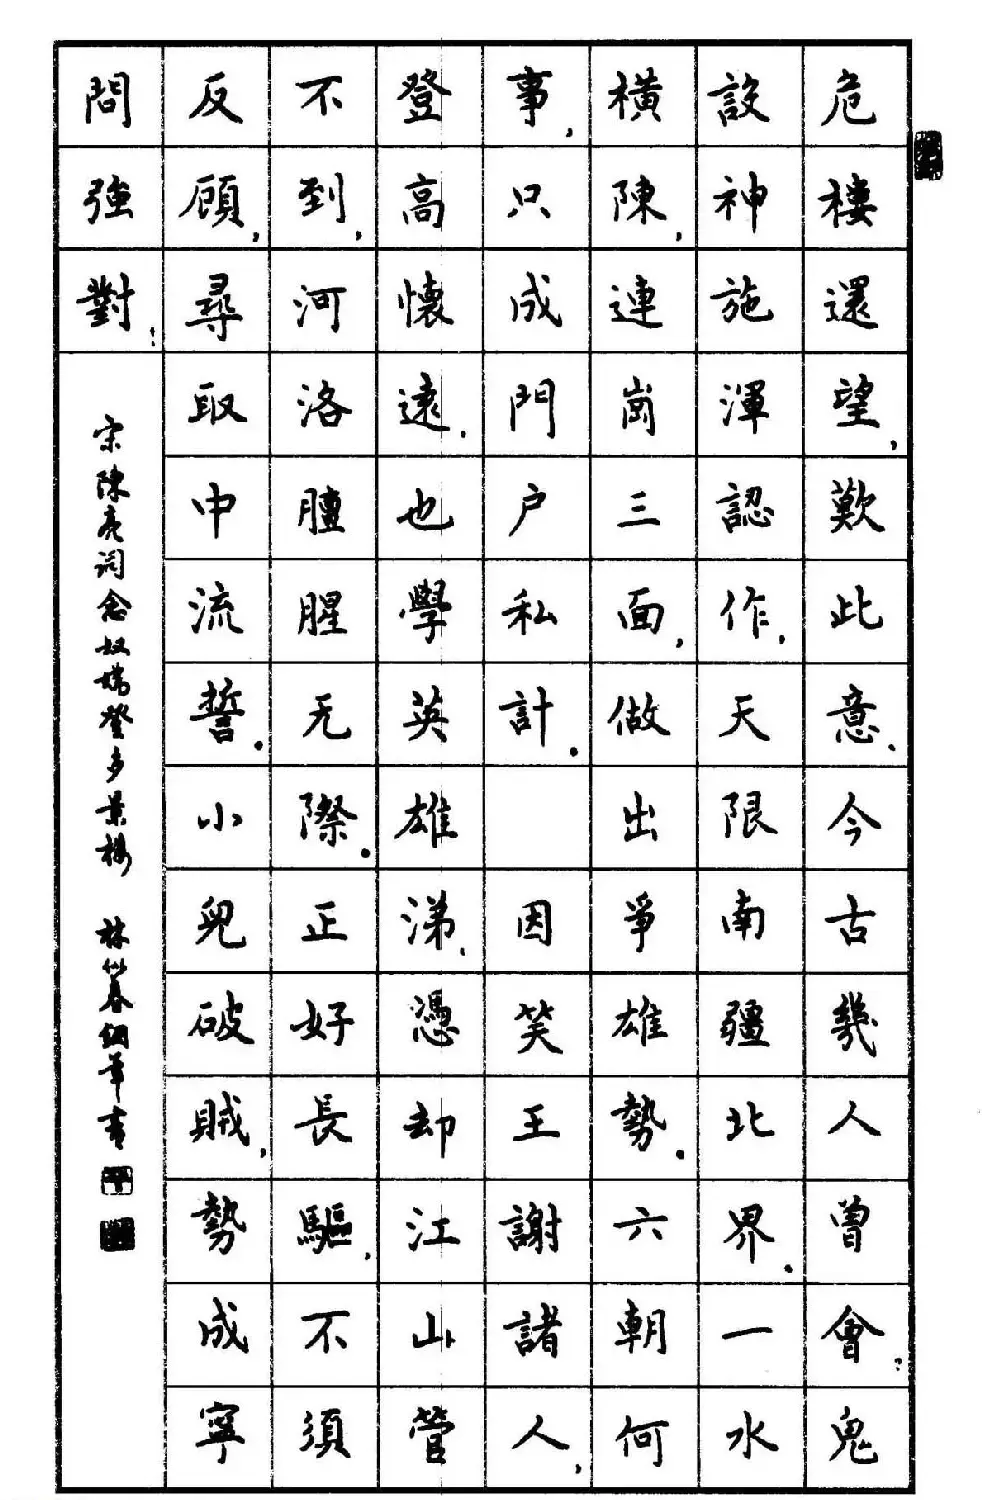 危樓還望，歎此意、今古幾人曾會：鬼
設神施渾認作，天限南疆北界。一水
橫陳，連崗三面，做出爭雄勢。六朝何
事，只成門户私計。 因笑王謝諸人，
登高懷遠，也學英雄涕、憑却江山管
不到，河洛膻腥无際。正好長驅，不須
反顧，尋取中流誓。小兒破賊，勢成寧
問強對：
宋陳亮詞念奴嬌登多景樓 林似春鋼筆書